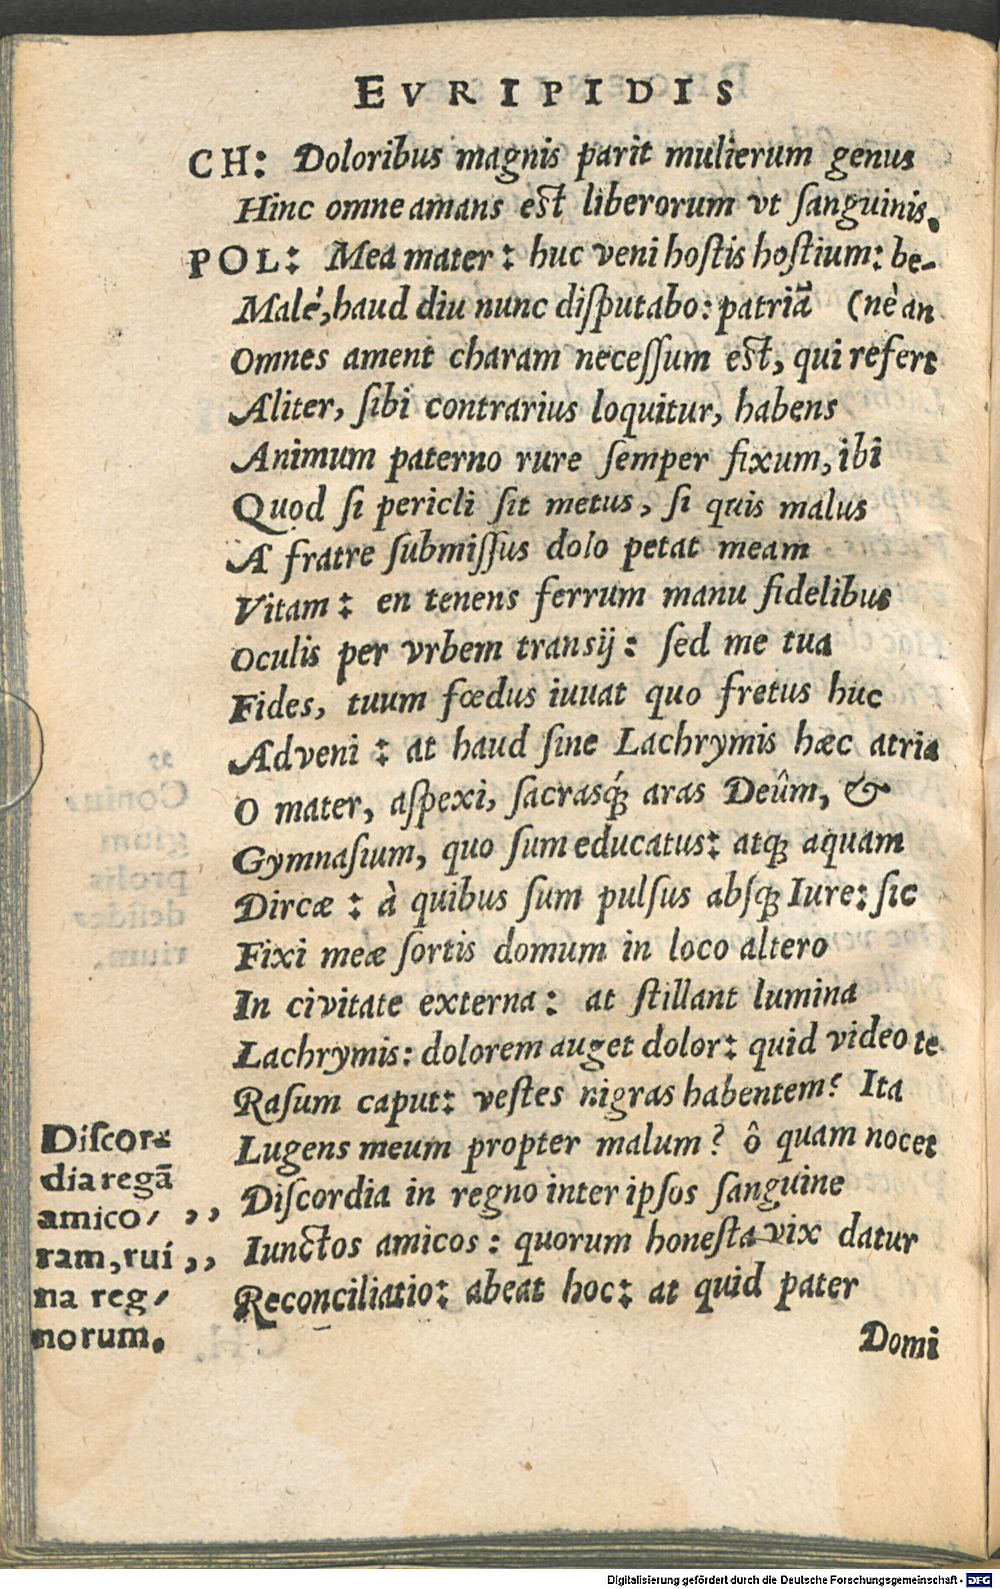 EVRIPIDIS
CH: Doloribus magnis parit mulierum genus
Hinc omne amans est liberorum vt sanguinis.
POL: Mea mater: huc veni hostis hostium: be-
Malé, haud diu nunc disputabo: patriā (nè an
Omnes ament charam necessum est, qui refert
Aliter, sibi contrarius loquitur, habens
Animum paterno rure semper fixum, ibi
Quod si pericli sit metus, si quis malus
A fratre submissus dolo petat meam
Vitam: en tenens ferrum manu fidelibus
Oculis per vrbem transij: sed me tua
Fides, tuum fœdus iuuat quo fretus huc
Adveni: at haud sine Lachrymis hæc atria
O mater, aspexi, sacrasq́; aras Deûm, &
Gymnasium, quo sum educatus: atq; aquam
Dircæ: à quibus sum pulsus absq; Iure: sic
Fixi meæ sortis domum in loco altero
In civitate externa: at stillant lumina
Lachrymis: dolorem auget dolor: quid video te
Rasum caput: vestes nigras habentem? Ita
Lugens meum propter malum? ô quam nocet
Discordia in regno inter ipsos sanguine
Iunctos amicos: quorum honesta vix datur
Reconciliatio: abeat hoc: at quid pater
Domi
Discor-
dia regā
amico-,,
ram, rui,,
na reg-
norum.
Digitalisierung gefördert durch die Deutsche Forschungsgemeinschaft - DFG